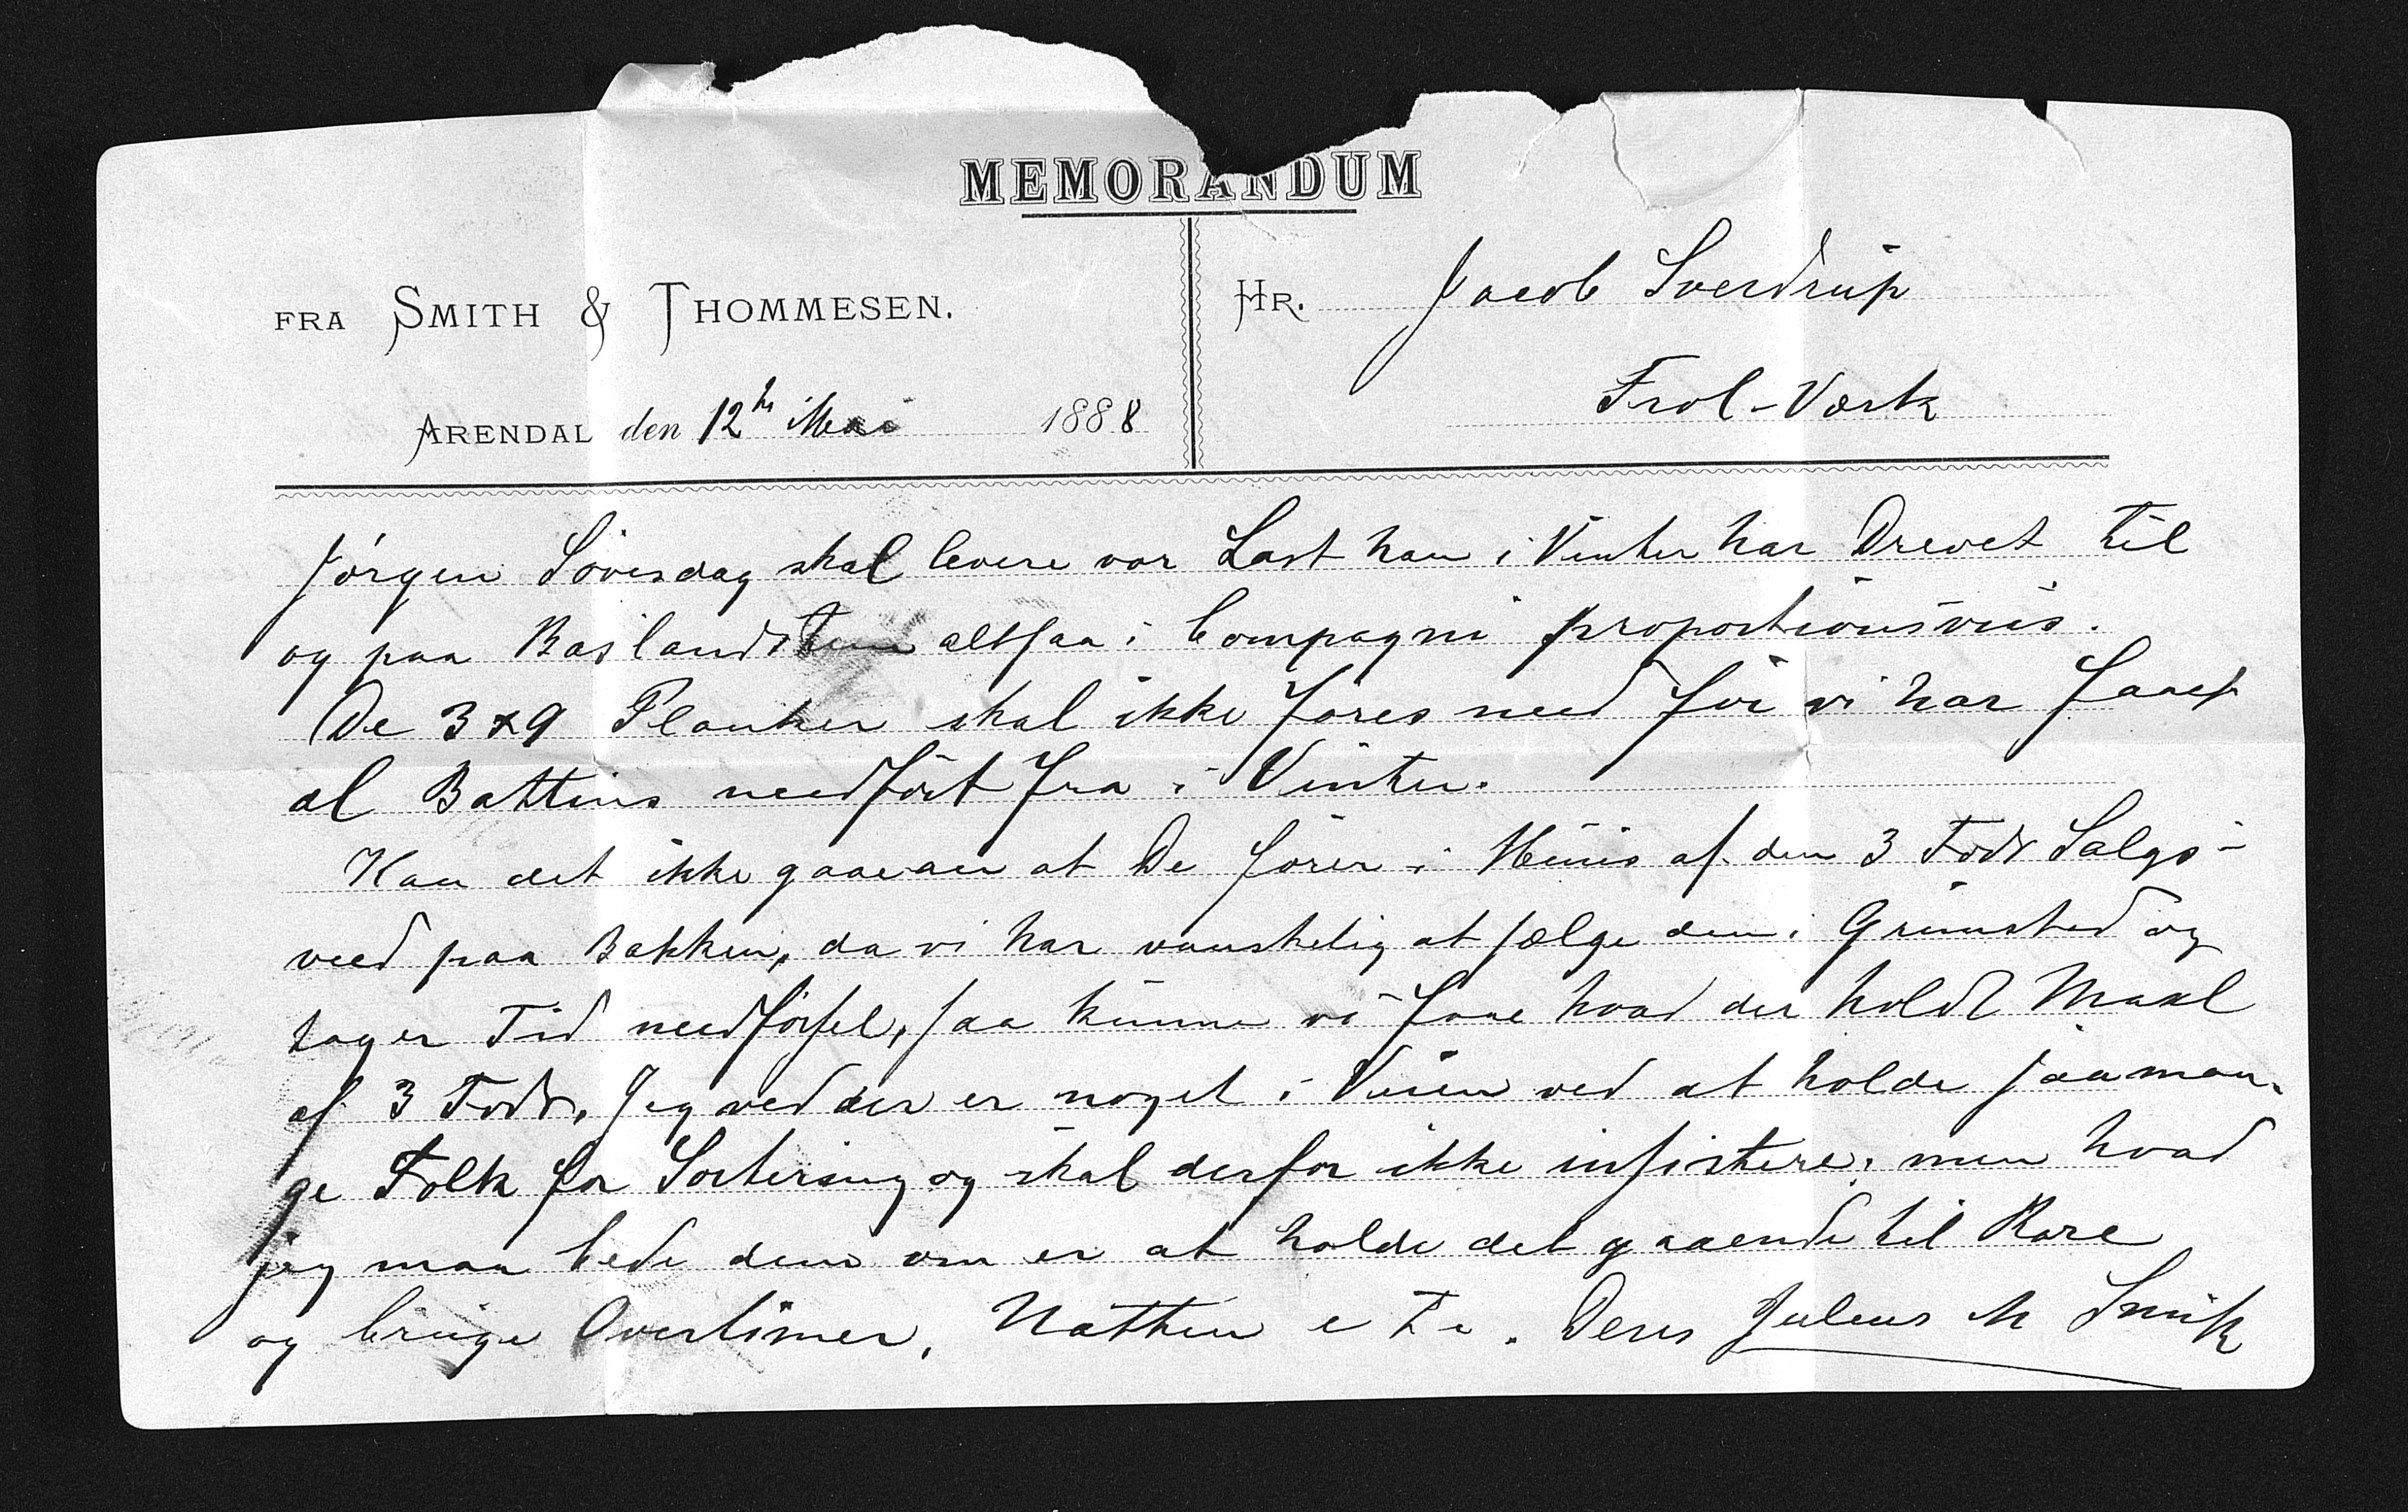 MEMORANDUM
FRA SMITH & THOMMESEN.
HR. Jacob Sverdrup
Frol-Værk
ARENDAL den 12te Mai 1888
Jørgen Løvesdag skal levere vor Last han i Vinter har Drevet til
og paa altsaa i Compagni proportionsviis.
De 3x9 Planker skal ikke føres need før vi har faaet
al Battens needført fra i Vinter.
Kan det ikke gaae an at De fører i Huus af den 3 Fods Salgs-
ved paa Bakken, da vi har vanskelig at sælge den i Grimsted og
tager Tid needførsel, saa kunne vi faae hvad der holdt Maal
af 3 Fods, Jeg ved der er noget i Veien ved at holde saa man-
ge Folk for Sortering og skal derfor ikke insistere, men hvad
jeg maa bede dem om er at holde det gaaende til Rore
og bruge Overtimer, Natten etc. Deres Julius M Smith